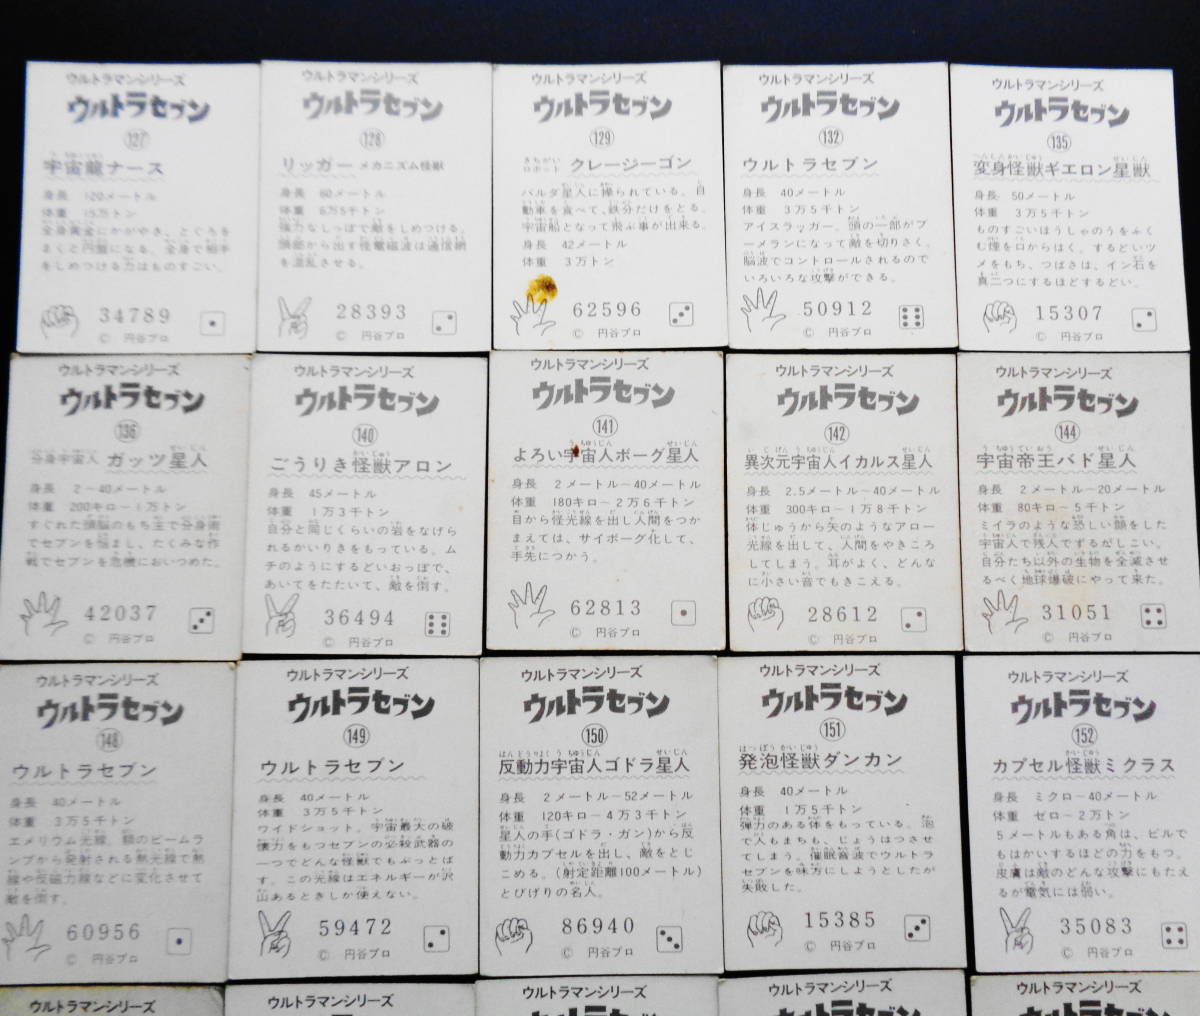 ウルトラマンシリーズ
ウルトラセブン
127
宇宙龍ナース
身長 120メートル
体重 15万トン
全身黄金にかがやき、とぐろを
まくと円盤になる。全身で相手
をしめつける力はものすごい。
34789
© 円谷プロ
ウルトラマンシリーズ
ウルトラセブン
128
リッガー メカニズム怪獣
身長 60メートル
体重 6万5千トン
強力なしっぽで敵をしめつける。
頭部から出す怪電磁波は通信網
を混乱させる。
28393
© 円谷プロ
ウルトラマンシリーズ
ウルトラセブン
129
きちがいロボット クレージーゴン
バルダ星人に操られている。自
動車を食べて、鉄分だけをとる。
宇宙船となって飛ぶ事が出来る。
身長 42メートル
体重 3万トン
62596
© 円谷プロ
ウルトラマンシリーズ
ウルトラセブン
132
ウルトラセブン
身長 40メートル
体重 3万5千トン
アイスラッガー。頭の一部がブ
ーメランになって敵を切りさく。
脳波でコントロールされるので
いろいろな攻撃ができる。
50912
© 円谷プロ
ウルトラマンシリーズ
ウルトラセブン
135
変身怪獣ギエロン星獣
身長 50メートル
体重 3万5千トン
ものすごいほうしゃのうをふく
む煙を口からはく。するどいツ
メをもち、つばさは、イン石を
真二つにするほどするどい。
15307
© 円谷プロ
ウルトラマンシリーズ
ウルトラセブン
136
分身宇宙人 ガッツ星人
身長 2〜40メートル
体重 200キロ〜1万トン
すぐれた頭脳のもち主で分身術
でセブンを悩まし、たくみな作
戦でセブンを危機においつめた。
42037
© 円谷プロ
ウルトラマンシリーズ
ウルトラセブン
140
ごうりき怪獣アロン
身長 45メートル
体重 1万3千トン
自分と同じくらいの岩をなげら
れるかいりきをもっている。ム
チのようにするどいおっぽで、
あいてをたたいて、敵を倒す。
36494
© 円谷プロ
ウルトラマンシリーズ
ウルトラセブン
141
よろい宇宙人ボーグ星人
身長 2メートル〜40メートル
体重 180キロ〜2万6千トン
目から怪光線を出し人間をつか
まえては、サイボーグ化して、
手先につかう。
62813
© 円谷プロ
ウルトラマンシリーズ
ウルトラセブン
142
異次元宇宙人イカルス星人
身長 2.5メートル〜40メートル
体重 300キロ〜1万8千トン
体じゅうから矢のようなアロー
光線を出して、人間をやきころ
してしまう。耳がよく、どんな
に小さい音でもきこえる。
28612
© 円谷プロ
ウルトラマンシリーズ
ウルトラセブン
144
宇宙帝王バド星人
身長 2メートル〜20メートル
体重 80キロ〜5千トン
ミイラのような恐しい顔をした
宇宙人で残人でずるがしこい。
自分たち以外の生物を全滅させ
るべく地球爆破にやって来た。
31051
© 円谷プロ
ウルトラマンシリーズ
ウルトラセブン
148
ウルトラセブン
身長 40メートル
体重 3万5千トン
エメリウム光線。額のビームラ
ンプから発射される熱光線で熱
線や反磁力線などに変化させて
敵を倒す。
60956
© 円谷プロ
ウルトラマンシリーズ
ウルトラセブン
149
ウルトラセブン
身長 40メートル
体重 3万5千トン
ワイドショット。宇宙最大の破
懐力をもつセブンの必殺武器の
一つでどんな怪獣でもぶっとば
す。この光線はエネルギーが沢
山あるときしか使えない。
59472
© 円谷プロ
ウルトラマンシリーズ
ウルトラセブン
150
反動力宇宙人ゴドラ星人
身長 2メートル〜52メートル
体重 120キロ〜4万3千トン
星人の手(ゴドラ・ガン)から反
動力カプセルを出し、敵をとじ
こめる。(射定距離100メートル)
とびげりの名人。
86940
© 円谷プロ
ウルトラマンシリーズ
ウルトラセブン
151
発泡怪獣ダンカン
身長 40メートル
体重 1万5千トン
弾力のある体をもっている。泡
で人もまちも、じょうはつさせ
てしまう。催眠音波でウルトラ
セブンを味方にしようとしたが
失敗した。
15385
© 円谷プロ
ウルトラマンシリーズ
ウルトラセブン
152
カプセル怪獣ミクラス
身長 ミクロ〜40メートル
体重 ゼロ〜2万トン
5メートルもある角は、ビルで
もはかいするほどの力をもつ。
皮膚は敵のどんな攻撃にもたえ
るが電気には弱い。
35083
© 円谷プロ
ウルトラマンシリーズ
ウルトラマンシリーズ
ウルトラマンシリーズ
ウルトラセブン
ウルトラマンシリーズ
ウルトラセブン
ウルトラマンシリーズ
ウルトラセブン